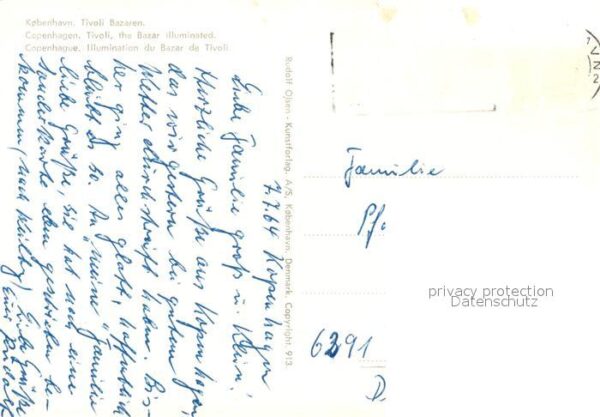 København. Tivoli Bazaren.
Copenhagen. Tivoli, the Bazar illuminated.
Copenhague. Illumination du Bazar de Tivoli
Rudolf Olsen - Kunstforlag. A/S. København. Denmark. Copyright. 913.
7.7.64 Kopenhagen
Liebe Familie groß u. klein!
Herzliche Grüße aus Kopenhagen,
das wir gestern bei gutem
Wetter durchstreift haben. Bis-
her ging alles glatt, hoffentlich
bleibt es so. An "meine" Familie
liebe Grüße, sie hat noch eine
Sonderkarte eben geschrieben be-
kommen, Liebe Grüße
Familie
Pfa
6291
D.
privacy protection
Datenschutz